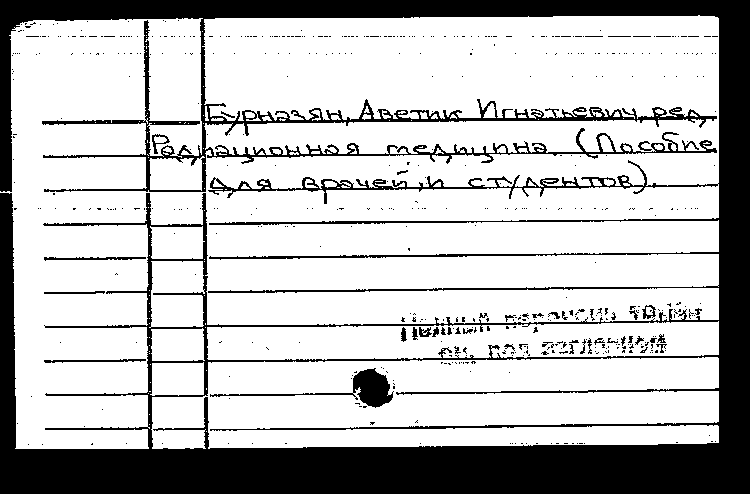 Бурназян, Аветик Игнатьевич, ред.
Радиационная медицина (Пособие
для врачей и студентов).
Полный перечень
см. под заглавием